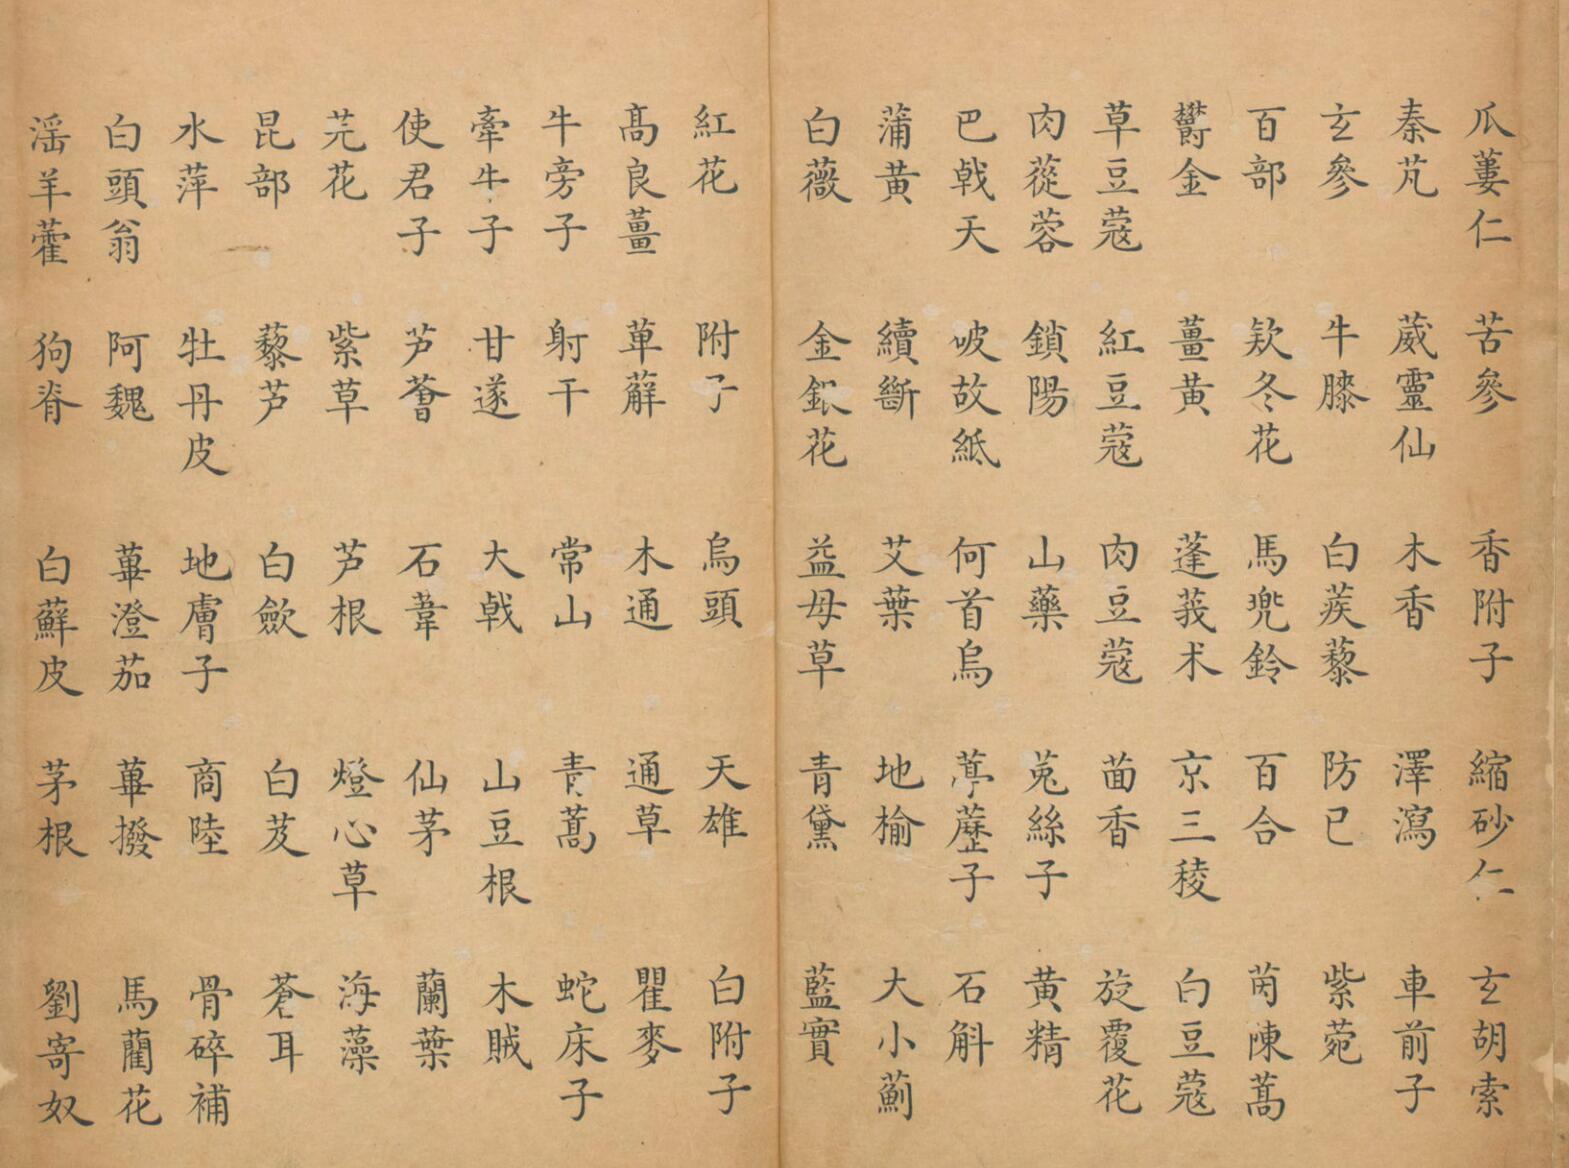 瓜蔞仁 苦參 香附子 縮砂仁 玄胡索
秦芃 葳靈仙 木香 澤瀉 車前子
玄參 牛膝 白蒺藜 防已 紫菀
百部 欵冬花 馬兜鈴 百合 茵陳蒿
欝金 薑黃 蓬莪术 京三稜 白豆蔻
草豆蔻 紅豆蔻 肉豆蔻 茴香 旋覆花
肉蓯蓉 鎖陽 山藥 菟絲子 黃精
巴戟天 破故紙 何首烏 葶藶子 石斛
蒲黃 續斷 艾葉 地榆 大小薊
白薇 金銀花 益母草 青黛 藍實
紅花 附子 烏頭 天雄 白附子
高良薑 萆薢 木通 通草 瞿麥
牛旁子 射干 常山 青蒿 蛇床子
牽牛子 甘遂 大戟 山豆根 木賊
使君子 芦薈 石葦 仙茅 蘭葉
芫花 紫草 芦根 燈心草 海藻
昆部 藜芦 白歛 白芨 蒼耳
水萍 牡丹皮 地膚子 商陸 骨碎補
白頭翁 阿魏 蓽澄茄 蓽撥 馬藺花
淫羊藿 狗脊 白蘚皮 茅根 劉寄奴